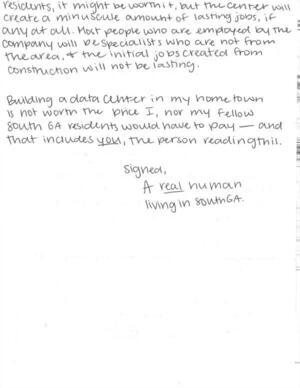 residents, it might be worth it, but the center will
create a minuscule amount of lasting jobs, if
any at all. Most people who are employed by the
company will be specialists who are not from
the area, & the initial jobs created from
construction will not be lasting.
Building a data center in my hometown
is not worth the price I, nor my fellow
South GA residents would have to pay — and
that includes you, the person reading this.
Signed,
A real human
living in South GA.